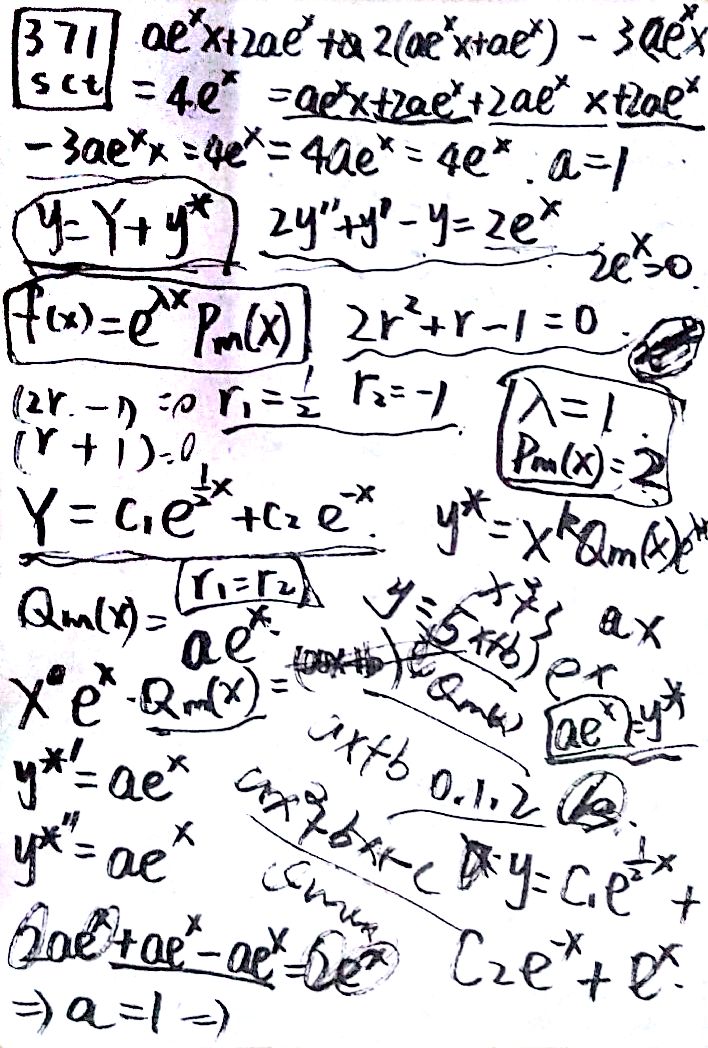 371 sct
ae^x x+2ae^x + 2(ae^x x+ae^x) - 3(ae^x x
= 4e^x = ae^x x+2ae^x+2ae^x x+2ae^x
-3ae^x x = 4e^x = 4ae^x = 4e^x. a=1
y=Y+y* 2y''+y'-y=2e^x
2e^x>0
f(x)=e^λx Pm(x) 2r²+r-1=0.
(2r-1)=0 r₁=1/2 r₂=-1 λ=1
(r+1)=0 Pm(x)=2
Y=C₁e^½x+C₂e^-x. y*=x^k Qm(x)e^λx
r₁=r₂
Qm(x)= ae^x. y= ax
x^0 e^x·Qm(x)= Qm(x) ae^x=y*
y*'=ae^x ax+b 0.1.2 k.
y*''=ae^x y=C₁e^½x+
2ae^x+ae^x-ae^x=2e^x C₂e^-x+e^x.
⇒a=1⇒